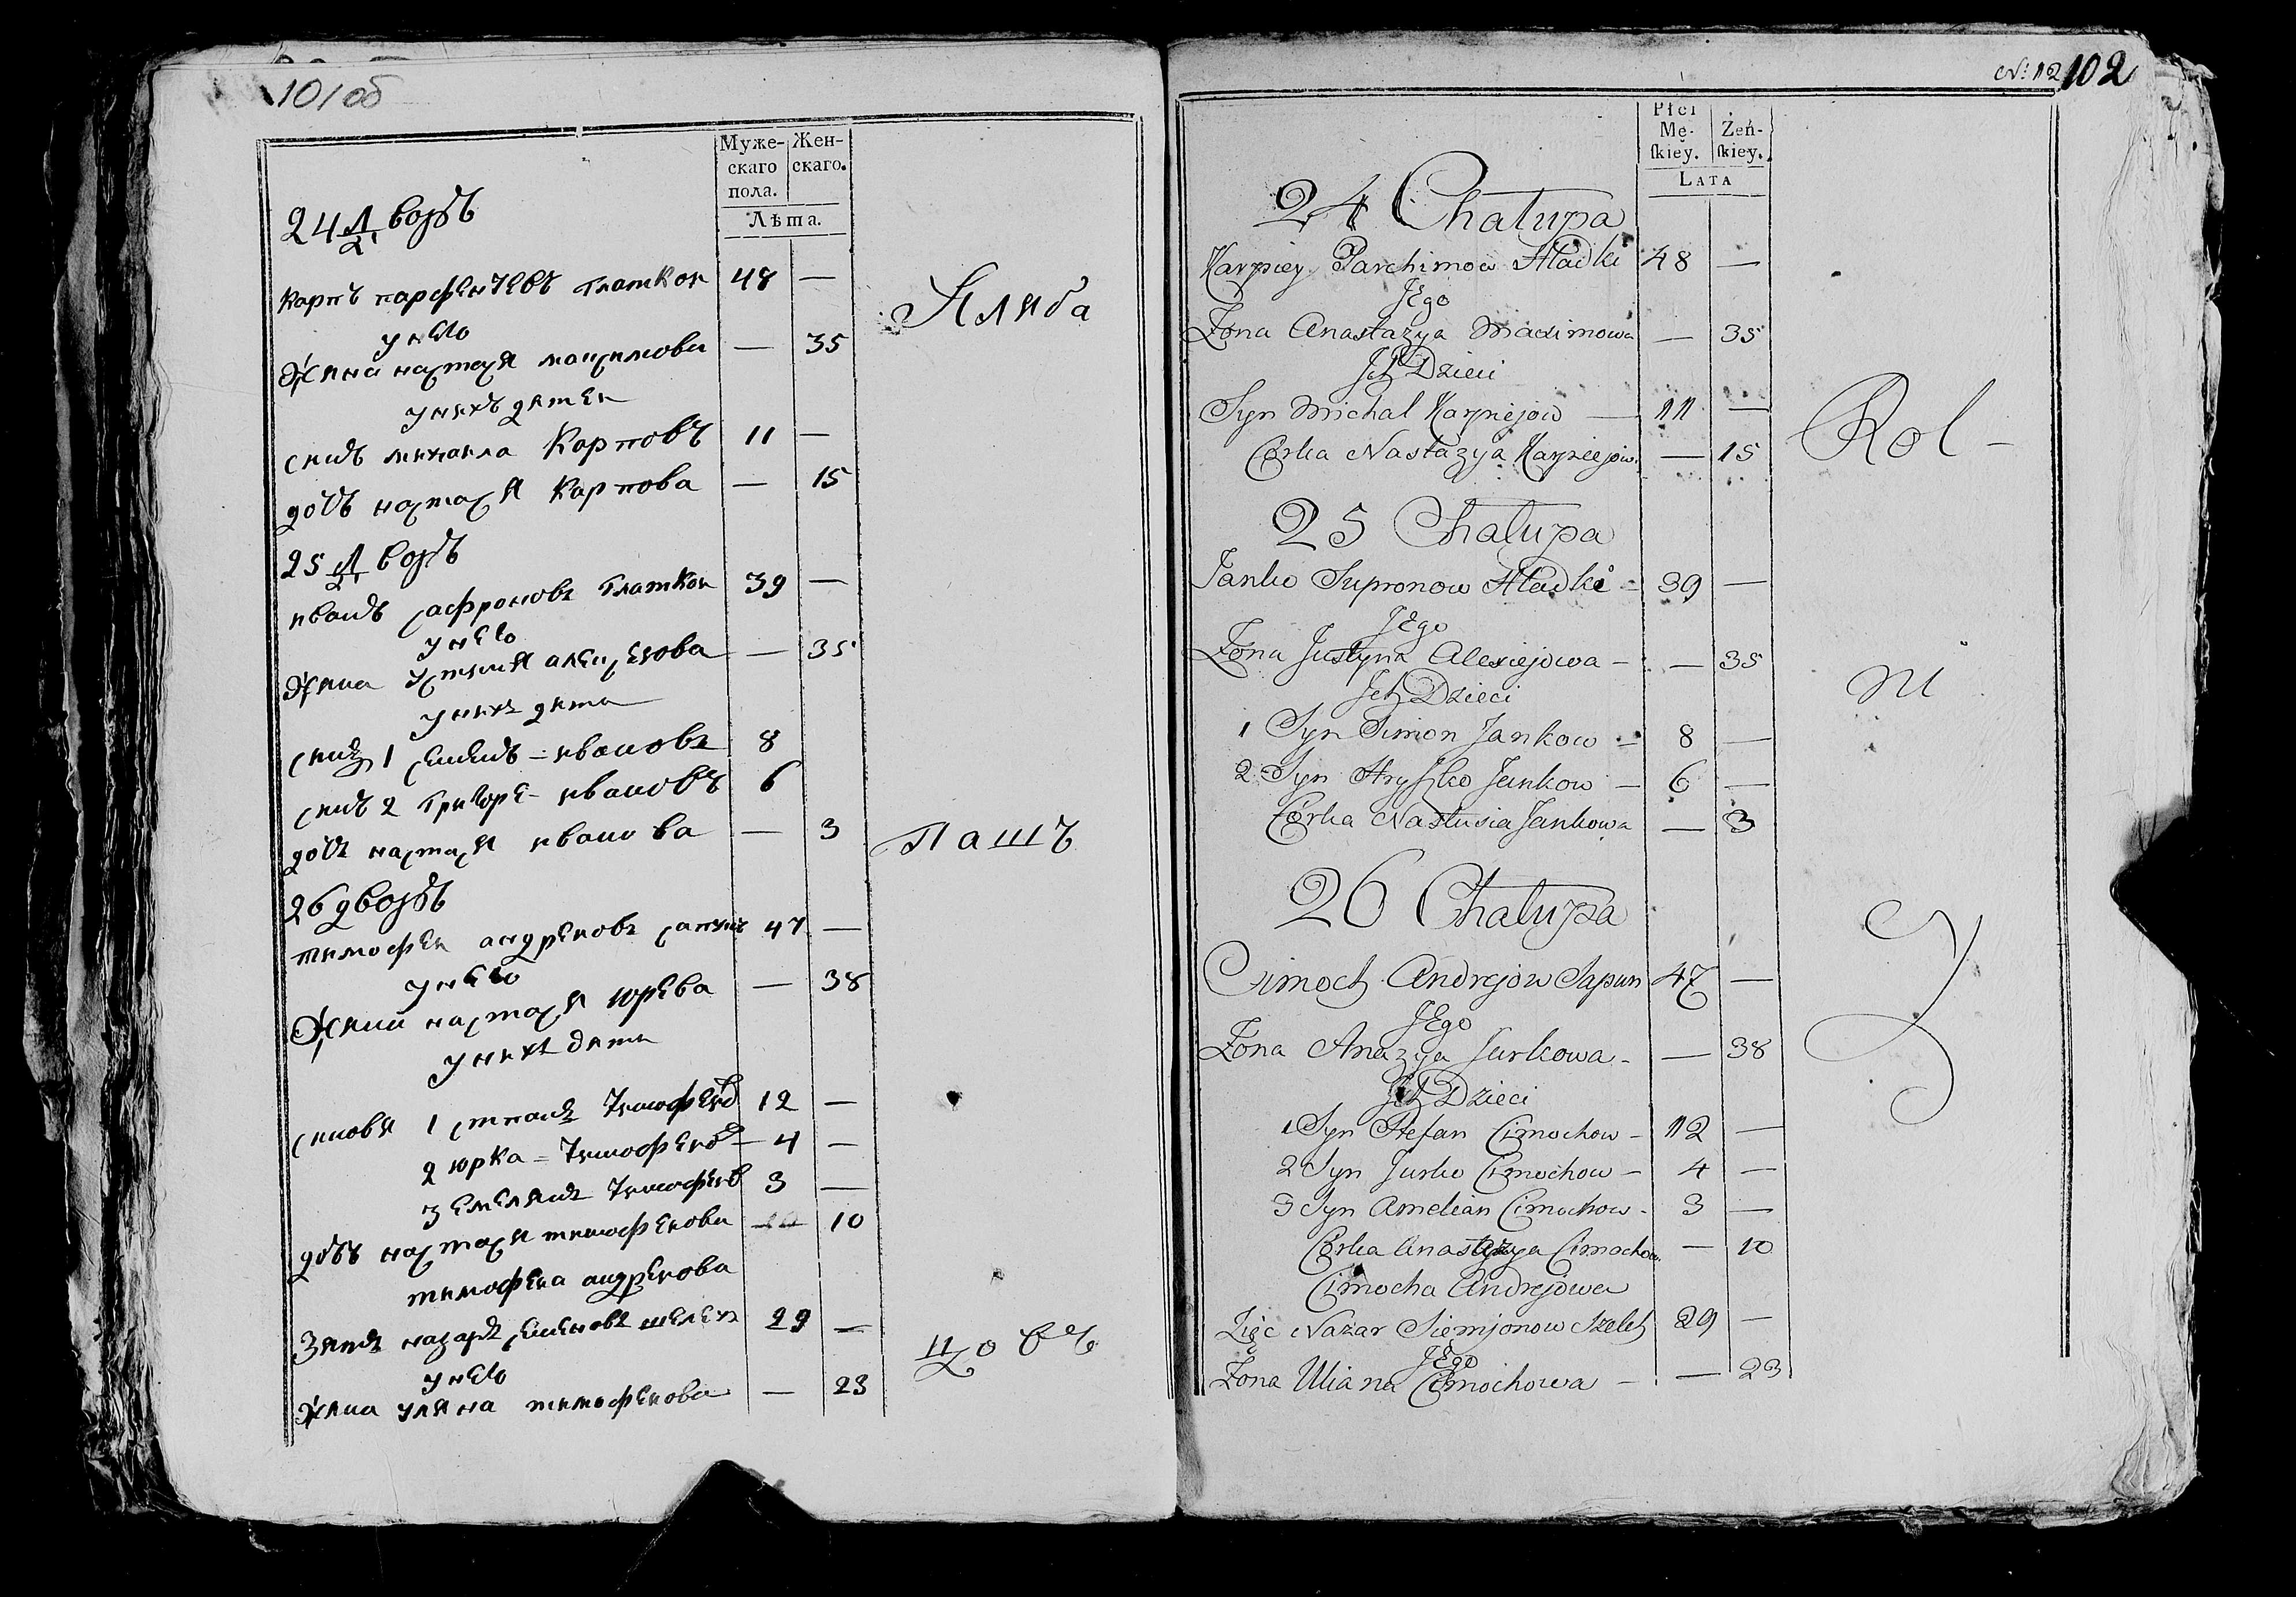 101об
Муже-
скаго
пола.
Жен-
скаго.
Лѣта.
24 Дворъ
Карпъ парфенчевъ Глаткои 48 —
унего
жина настася мацимови — 35
унихъ дитеи
синъ михаила Карповъ 11 —
дочъ настася Карпова — 15
25 Дворъ
иванъ сафроновъ Глаткои 39 —
унего
жина устиня алецеиова — 35
унихъ дити
синъ 1 семенъ = ивановъ 8
синъ 2 Григоре = ивановъ 6
дочъ настася иванова — 3
26 дворъ
тимофеи андреиовъ сапунъ 47 —
унего
жини настася юрева — 38
унихъ дити
синовя 1 стпанъ Тимофеиов 12 —
2 юрка = Тимофеиов — 4 —
3 емелянъ Тимофеив 3 —
дочъ настася тимофеиови 10
тимофеиа андреиова
Зять назаръ семеновъ шелехъ 29 —
унего
жина уляна тимофеиова — 23
Хляба
Пашъ
цовъ
№ 12 102
Płci
Mę-
skiey.
Żeń-
skiey.
Lata
24 Chałupa
Karpiey Parchimow Hładki 48 —
Jego
Żona Anastazya Maximowa — 35
Jch Dzieci
Syn Michał Karpiejow — 11 —
Corka Nastazya Karpiejow. — 15
25 Chałupa
Janko Supronow Hładki — 39 —
Jego
Żona Justyna Alexiejowa — — 35
Jch Dzieci
1 Syn Simon Jankow — 8 —
2 Syn Hryszko Jankow — 6 —
Corka Nastusia Jankowa — 3
26 Chałupa
Cimoch Andrejow Sapun 47 —
Jego
Żona Anazya Jurkowa — — 38
Jch Dzieci
1 Syn Stefan Cimochow — 12 —
2 Syn Jurko Cimochow — 4 —
3 Syn Amelian Cimochow — 3 —
Corka Anastazya Cimochow. — 10
Cimocha Andrejowa
Zięc Nazar Siemjonow Szeleh 29 —
Jego
Żona Uliana Cimochowa — — 23
Rol-
ni